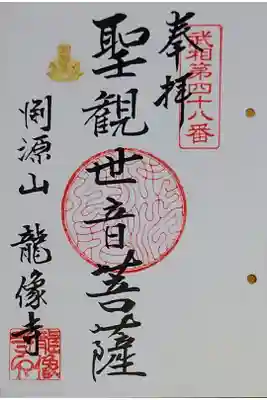 武相第四十八番
奉拝
聖観世音菩薩
渕源山 龍像寺